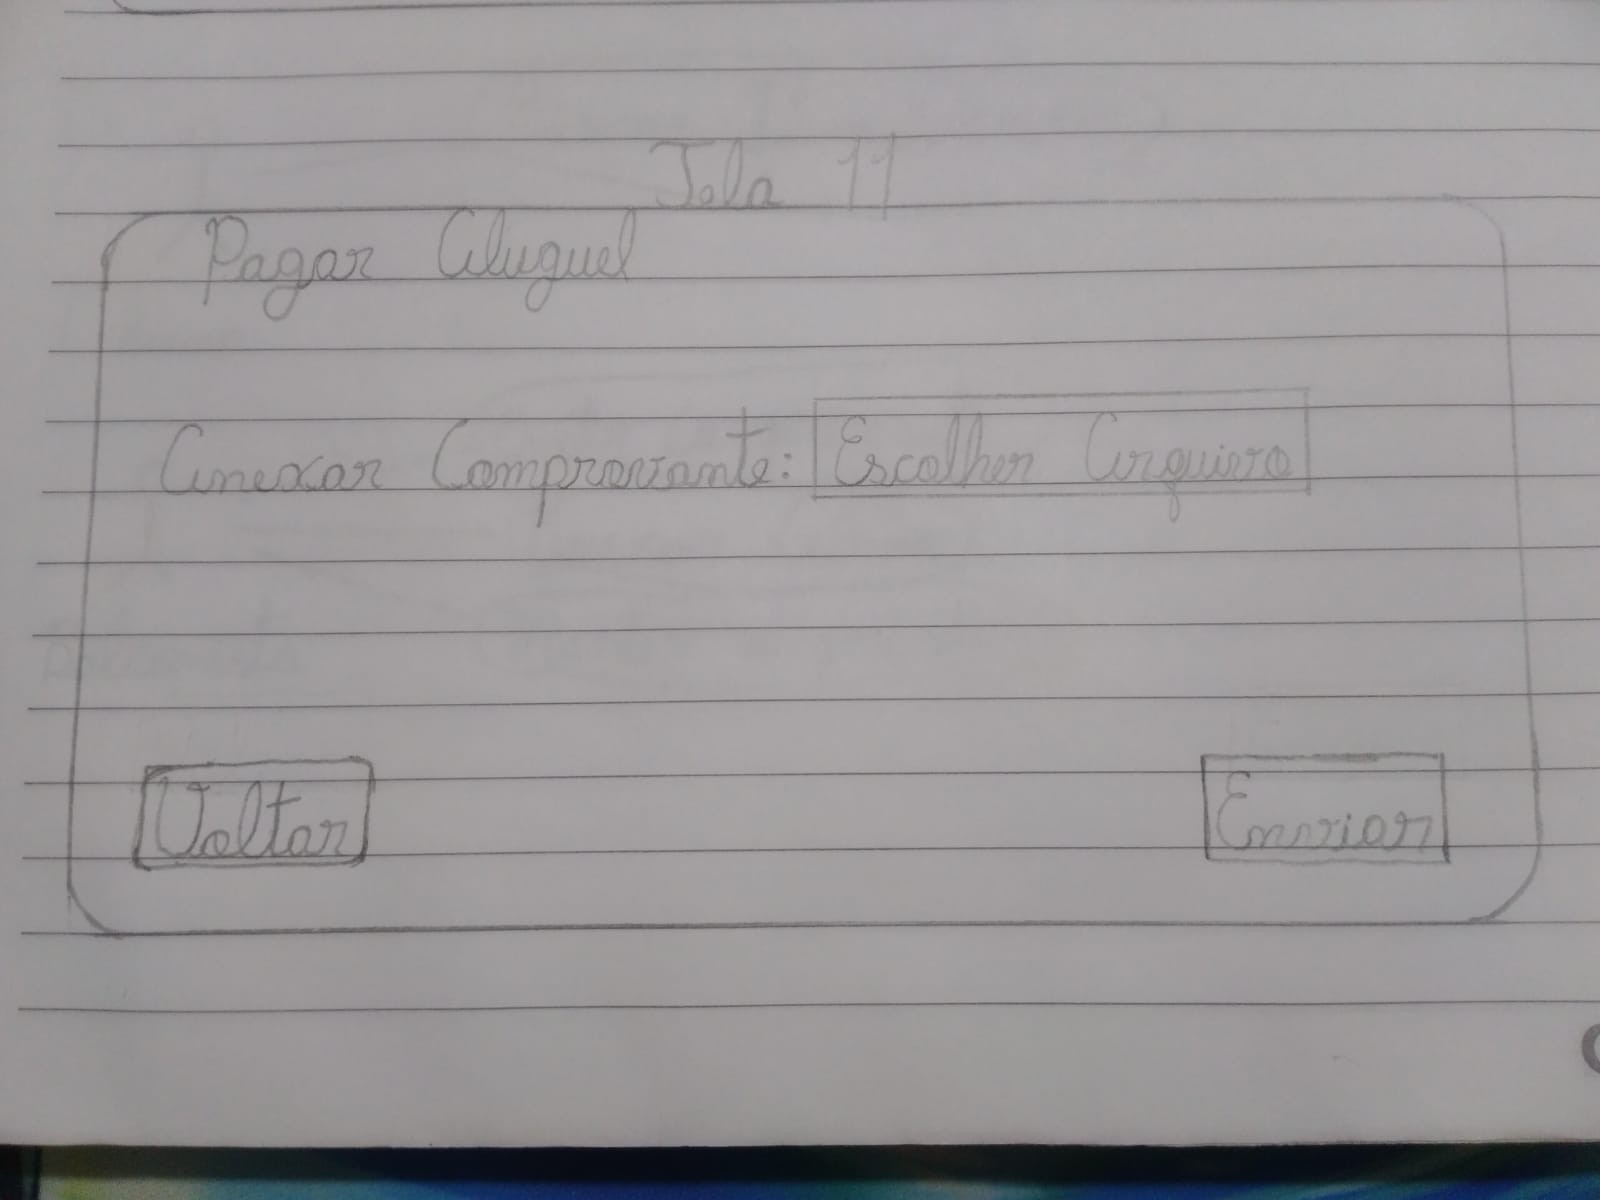 Tela 11
Pagar Aluguel
Anexar Comprovante: Escolher Arquivo
Voltar Enviar